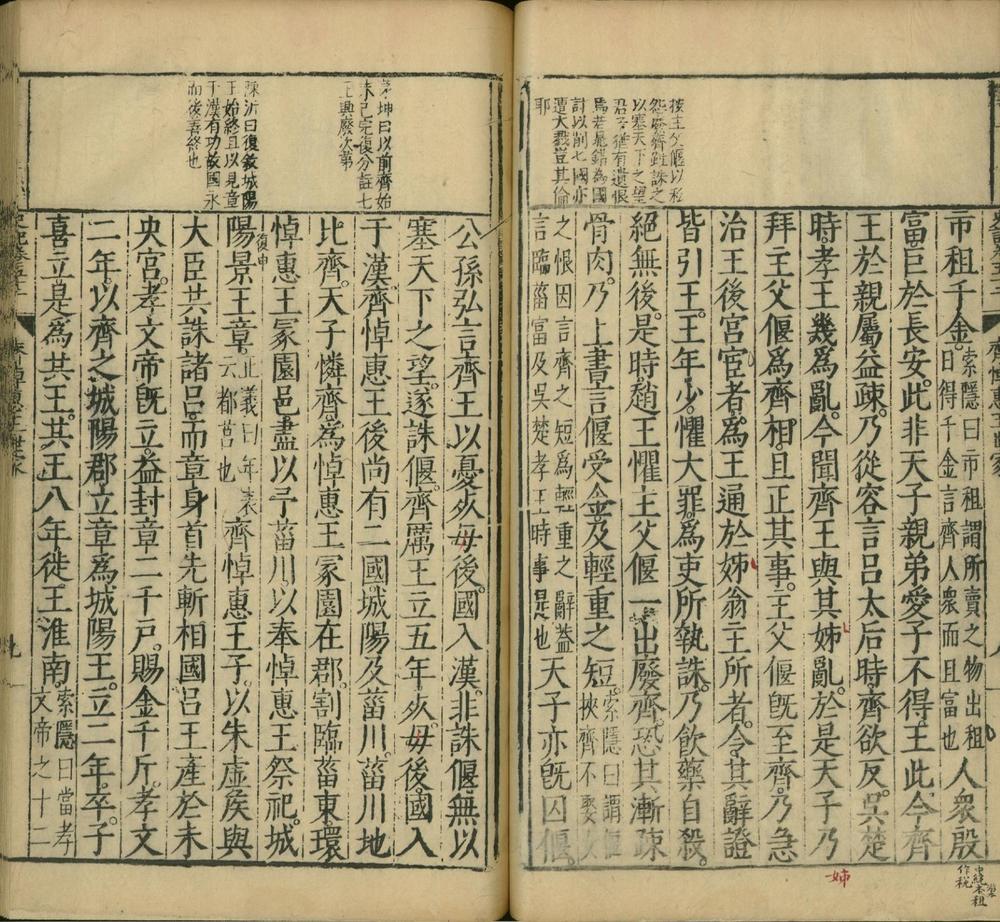 按主父偃以私
怨廢齊雖誅之
以塞天下之望
君子猶有遺恨
焉若晁錯為國
討以削七國亦
遭大戮豈其倫
耶
市租千金索隱曰市租謂所賣之物出租
日得千金言齊人衆而且富也人衆殷
富巨於長安此非天子親弟愛子不得王此今齊
王於親屬益疎乃從容言呂太后時齊欲反吳楚
時孝王幾爲亂今聞齊王與其姊亂於是天子乃
拜主父偃爲齊相且正其事主父偃旣至齊乃急
治王後宮宦者爲王通於姊翁主所者令其辭證
皆引王王年少懼大罪爲吏所執誅乃飲藥自殺
絕無後是時趙王懼主父偃一出廢齊恐其漸疎
骨肉乃上書言偃受金及輕重之短索隱曰謂偃挾齊不娶女
之恨因言齊之短爲輕重之辭蓋
言臨菑富及吳楚孝王時事是也天子亦旣囚偃
姊
作稅
茅坤曰以前齊始
末已完復分註七
王興廢次第
陳沂曰復敘城陽
王始終且以見章
于漢有功故國永
而後善終也
公孫弘言齊王以憂死毋後國入漢非誅偃無以
塞天下之望遂誅偃齊厲王立五年死毋後國入
于漢齊悼惠王後尚有二國城陽及菑川菑川地
比齊天子憐齊爲悼惠王冢園在郡割臨菑東環
悼惠王冢園邑盡以予菑川以奉悼惠王祭祀城
復申
陽景王章正義曰年表云都莒也齊悼惠王子以朱虛侯與
大臣共誅諸呂而章身首先斬相國呂王產於未
央宮孝文帝旣立益封章二千戶賜金千斤孝文
二年以齊之城陽郡立章爲城陽王立二年卒子
喜立是爲共王共王八年徙王淮南索隱曰當孝
文帝之十二